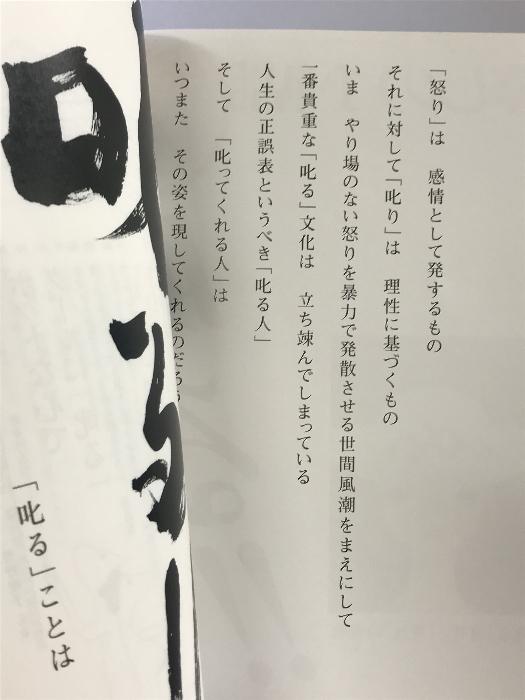 「怒り」は　感情として発するもの
それに対して「叱り」は　理性に基づくもの
いま　やり場のない怒りを暴力で発散させる世間風潮をまえにして
一番貴重な「叱る」文化は　立ち竦んでしまっている
人生の正誤表というべき「叱る人」
そして　「叱ってくれる人」は
いつまた　その姿を現してくれるのだろう
「叱る」ことは